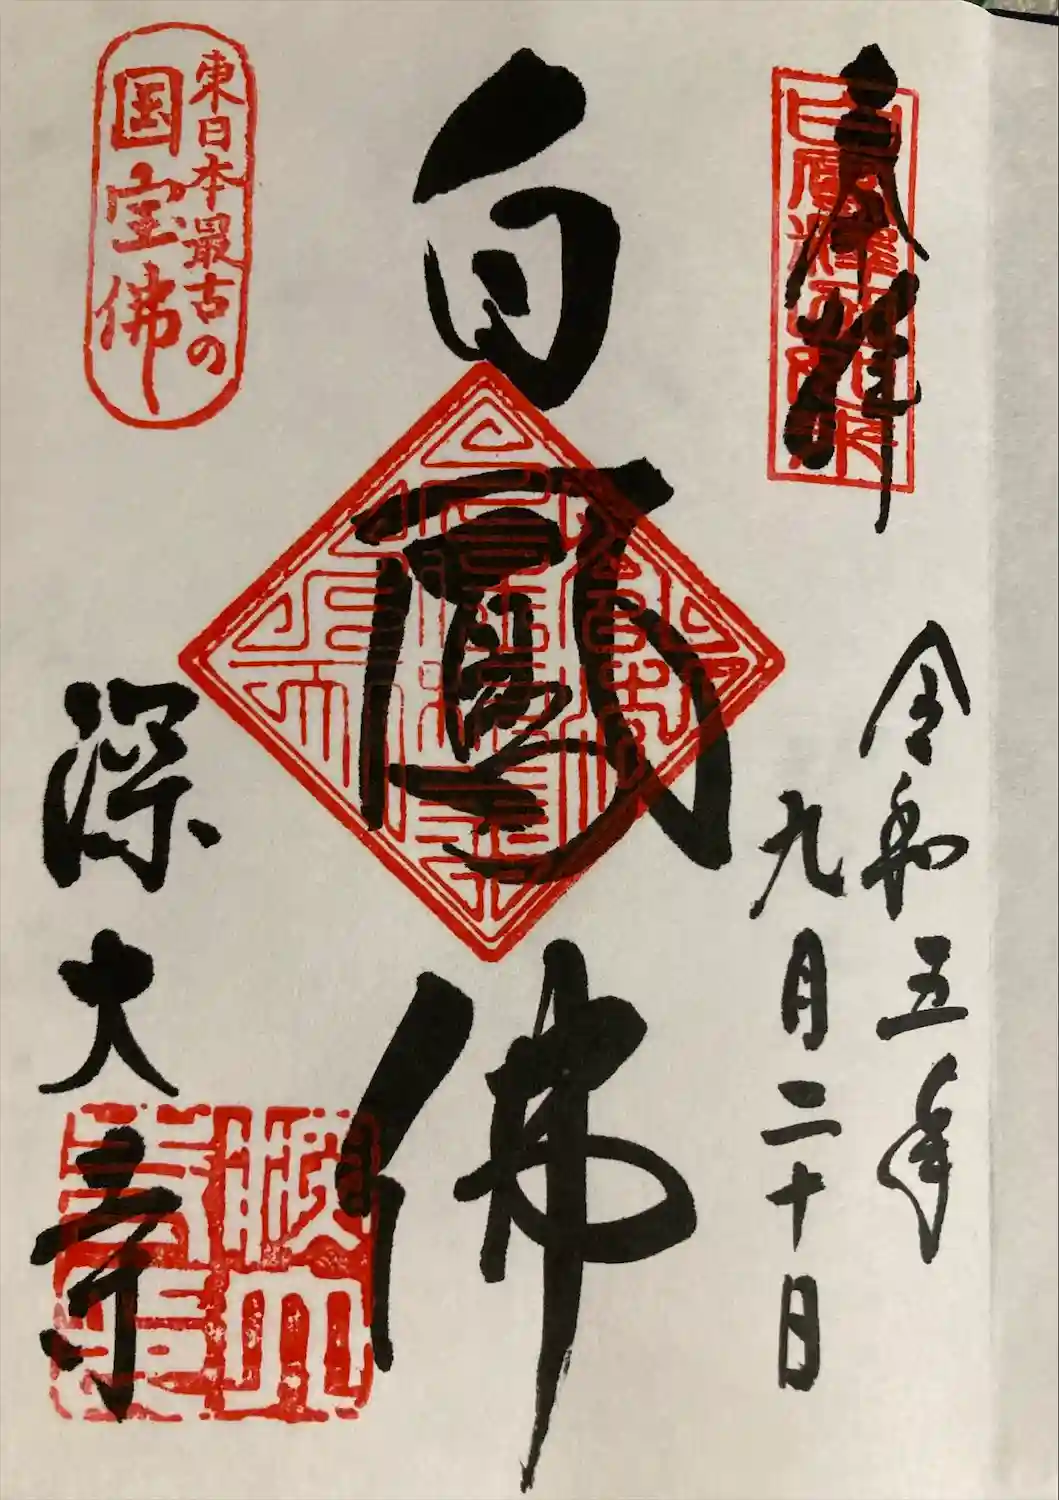 奉拝
令和五年
九月二十日
白鳳佛
東日本最古の
国宝佛
深大寺